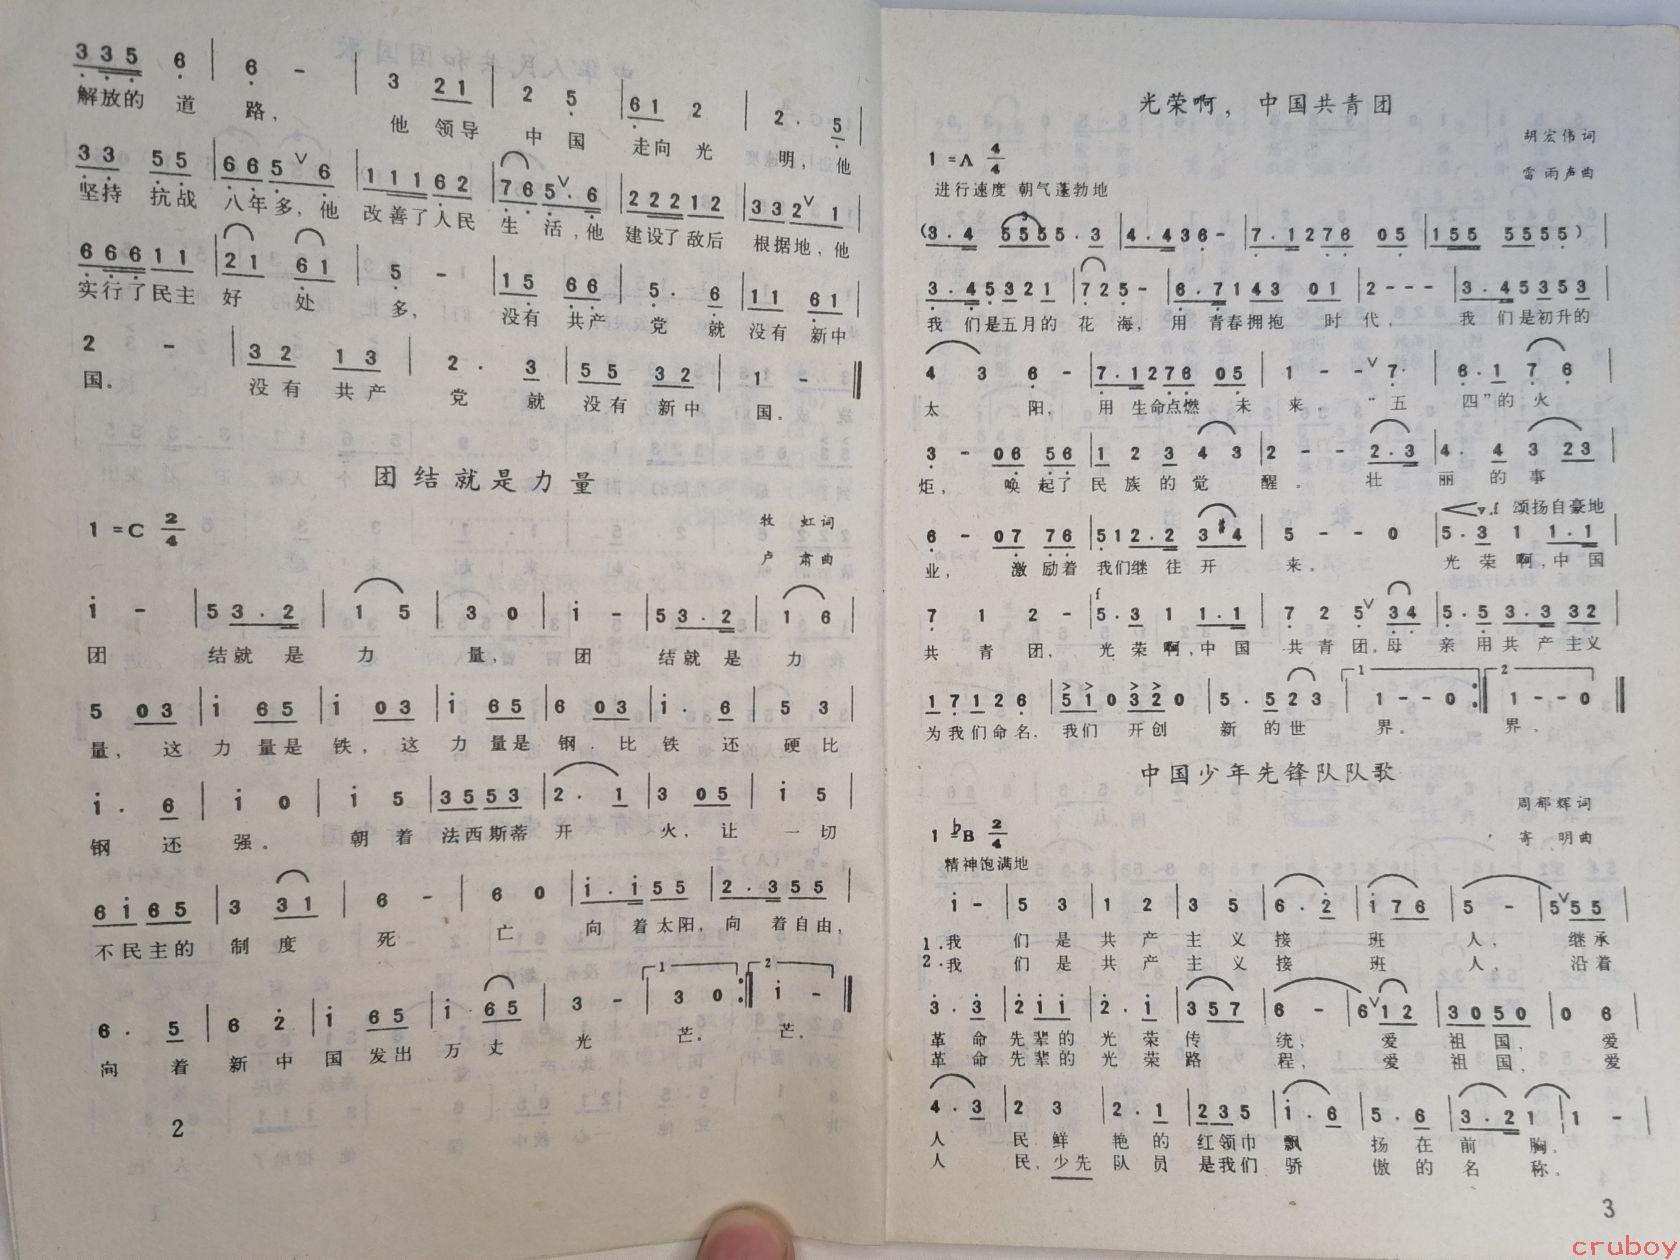 3 3 5 6 | 6 - | 3 2 1 | 2 5 | 6 1 2 | 2 . 5
解放的 道 路, 他 领导 中 国 走向 光 明, 他
3 3 5 5 | 6 6 5 ∨ 6 | 1 1 1 6 2 | 7 6 5 ∨ 6 | 2 2 2 1 2 | 3 3 2 ∨ 1 |
坚持 抗战 八年多, 他 改善了人民 生 活, 他 建设了敌后 根据地, 他
6 6 6 1 1 | 2 1 6 1 | 5 - | 1 5 6 6 | 5 . 6 | 1 1 6 1 |
实行了民主 好 处 多, 没有 共产 党 就 没有 新中
2 - | 3 2 1 3 | 2 . 3 | 5 5 3 2 | 1 - ‖
国。 没有 共产 党 就 没有 新中 国。
团结就是力量
1=C 2/4
牧 虹词
卢 肃曲
i - | 5 3 . 2 | 1 5 | 3 0 | i - | 5 3 . 2 | 1 6 |
团 结就 是 力 量, 团 结就 是 力
5 0 3 | i 6 5 | i 0 3 | i 6 5 | 6 0 3 | i . 6 | 5 3 |
量, 这 力 量是 铁, 这 力 量是 钢. 比 铁 还 硬比
i . 6 | i 0 | i 5 | 3 5 5 3 | 2 . 1 | 3 0 5 | i 5 |
钢 还 强。 朝 着 法西斯蒂 开 火, 让 一 切
6 i 6 5 | 3 3 1 | 6 - | 6 0 | i . i 5 5 | 2 . 3 5 5 |
不民主的 制 度 死 亡 向 着太阳, 向 着自由,
6 . 5 | 6 2 | i 6 5 | i . 6 5 | 3 - | 1 3 0 :‖ 2 i - ‖
向 着 新 中 国 发出 万 丈 光 芒。 芒。
2
光荣啊, 中国共青团
胡宏伟词
雷雨声曲
1=A 4/4
进行速度 朝气蓬勃地
(3 . 4 5 5 5 5 . 3 | 4 . 4 3 6 - | 7 . 1 2 7 6 0 5 | 1 5 5 5 5 5 5 ) |
3 . 4 5 3 2 1 | 7 2 5 - | 6 . 7 1 4 3 0 1 | 2 - - - | 3 . 4 5 3 5 3 |
我 们是五月的 花 海, 用 青春拥抱 时 代, 我 们是初升的
4 3 6 - | 7 . 1 2 7 6 0 5 | 1 - - ∨ 7 | 6 . 1 7 6 |
太 阳, 用 生命点燃 未 来, “五 四”的 火
3 - 0 6 5 6 | 1 2 3 4 3 | 2 - - 2 . 3 | 4 . 4 3 2 3 |
炬, 唤 起了 民 族 的 觉 醒。 壮 丽 的 事
颂扬自豪地
6 - 0 7 7 6 | 5 1 2 . 2 3 #4 | 5 - - 0 | 5 . 3 1 1 . 1 |
业, 激 励着 我们继 往 开 来。 光 荣 啊, 中 国
7 1 2 - | 5 . 3 1 1 . 1 | 7 2 5 ∨ 3 4 | 5 . 5 3 . 3 3 2 |
共 青 团, 光 荣 啊,中 国 共 青 团,母 亲 用 共 产 主义
1 7 1 2 6 | 5 1 0 3 2 0 | 5 . 5 2 3 | 1 1 - - 0 :‖ 2 1 - - 0 ‖
为我们命名, 我们 开创 新 的世 界。 界.
中国少年先锋队队歌
周郁辉词
寄 明曲
1 ♭B 2/4
精神饱满地
i - | 5 3 | 1 2 | 3 5 | 6 . 2 | i 7 6 | 5 - | 5 ∨ 5 5 |
1.我 们 是 共 产 主 义 接 班 人, 继承
2.我 们 是 共 产 主 义 接 班 人, 沿着
3 . 3 | 2 i i | 2 . i | 3 5 7 | 6 - | 6 ∨ i 2 | 3 0 5 0 | 0 6 |
革 命 先辈的 光 荣 传 统, 爱 祖 国, 爱
革 命 先辈的 光 荣 路 程, 爱 祖 国, 爱
4 . 3 | 2 3 | 2 . 1 | 2 3 5 | i . 6 | 5 . 6 | 3 . 2 1 | 1 - |
人 民 鲜 艳 的 红领巾 飘 扬 在 前 胸,
人 民,少先 队 员 是我们 骄 傲 的 名 称。
3
cruboy